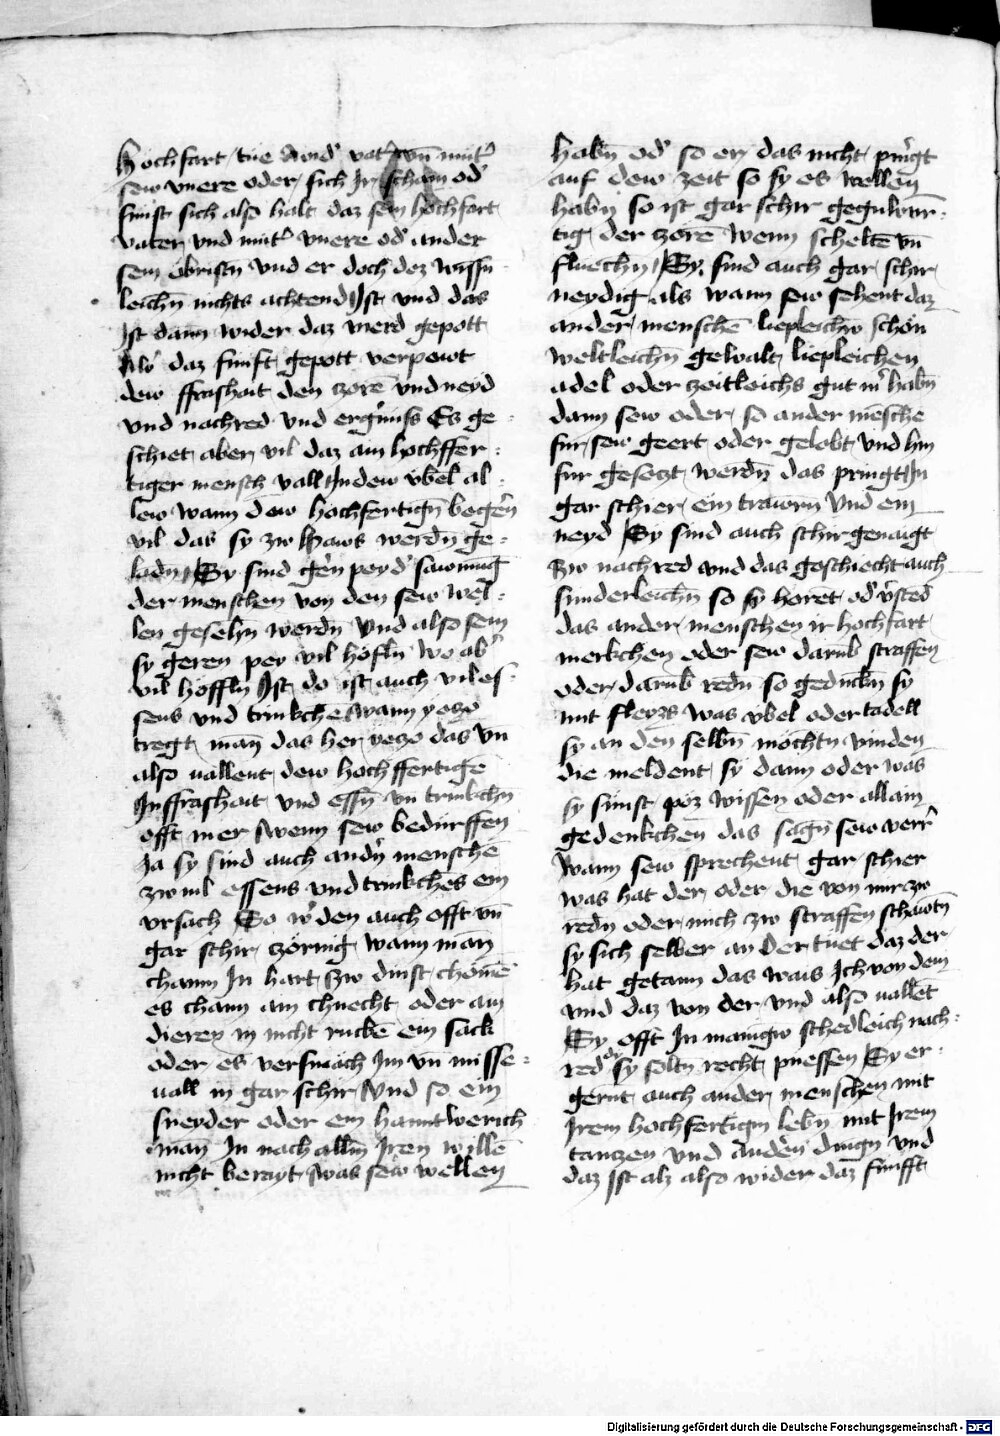 hochfart tue Amd᾽ vat᾽ vn̄ mut᾽
sew vnere oder sich Ir scham od᾽
sunst sich also halt daz sein hochfart
vater vnd mut᾽ vnere od᾽ ander
sein obristn̄ vnd er doch dez wissn̄-
leichn̄ nichts achtend Ist vnd das
Ist dann wider daz vierd gepott
daz funft gepott verpewt
dew ffrashait den zorē vnd neyd
vnd nachred vnd erg᾽nuss Es ge-
schiet aber vil daz ain hochffer-
tiger mensch vall In dew vbel al-
lew wann dew hochfertign̄ begern̄
vil das sy zw Haws werdn̄ ge-
ladn̄ Sy sind gern̄ pey d᾽ samnūg
der menschen von den sew wel-
len gesehn̄ werdn̄ vnd also sein
sy geren pey vil hofln̄ wo ab᾽
vil hoffln̄ Ist do ist auch vil es-
sens vnd trinkches wann yezo
tregt man̄ das her yezo das vn̄
also uallent dew hochffertige
In ffrashait vnd essn̄ vn̄ trinkchn̄
offt mer wenn sew bedurffen
Ja sy sind auch and᾽n menschē
zw uil essens vnd trinkches ein
vrsach So w᾽den auch offt vn̄
gar schir zörnig wann man
chann In hart zw dinst chömē
es chann ain chnecht oder ain
dieren in nicht ruckē ein sack
oder es versmäch Im vn̄ misse-
uall in gar schir Vnd so ein
sneyder oder ein hanntwerich
man̄ In nach allm̄ Iren willē
nicht berayt was sew wellen
habn̄ od᾽ so er das nicht pringt
auf dew zeit so sy es wellen
habn̄ so ist gar schir gegnbur-
tig der zorē wenn scheltē vn̄
fluechn̄ Sy sind auch gar schir
neydig als wann sew sehent daz
ander menschē liepleichn̄ schön
weltleichn̄ gewalt liepleichen
adel oder zeitleichs gut m᾽ habn̄
dann sew oder so ander mēsche
fur sew geert oder gelobt vnd hin
fur gesetzt werdn̄ das pringt In
gar schier ein trawrn̄ vnd ein
neyd Sy sind auch schir genaigt
zw nachred vnd das geschiecht auch
sunderleichn̄ so sy höret od᾽ v᾽sted
das ander menschen ir hochfart
merkchen oder sew darūb straffen
oder darūb redn̄ so gedēckn̄ sy
mit fleyzs was vbel oder tadell
sy an den selbn̄ möchtn̄ vinden
die meldent sy dann oder was
sy sunst pöz wissen oder allain
gedenkchen das sagn̄ sew verr᾽
wann sew sprechent gar schier
was hat der oder die von mir zw
redn̄ oder mich zw straffen schawtn̄
sy sich selber an der tuet daz der
hat getann das wais Ich von dem
vnd daz von der vnd also uallet
Sy offt In manigw schedleich nach-
red sy soltn̄ recht pruessen Sy er-
gernt auch ander menschen mit
Irem hochfertign̄ lebn̄ mit Irem
tantzen vnd Andern̄ dingn̄ vnd
daz Ist alz also wider daz funfft
Digitalisierung gefördert durch die Deutsche Forschungsgemeinschaft - DFG